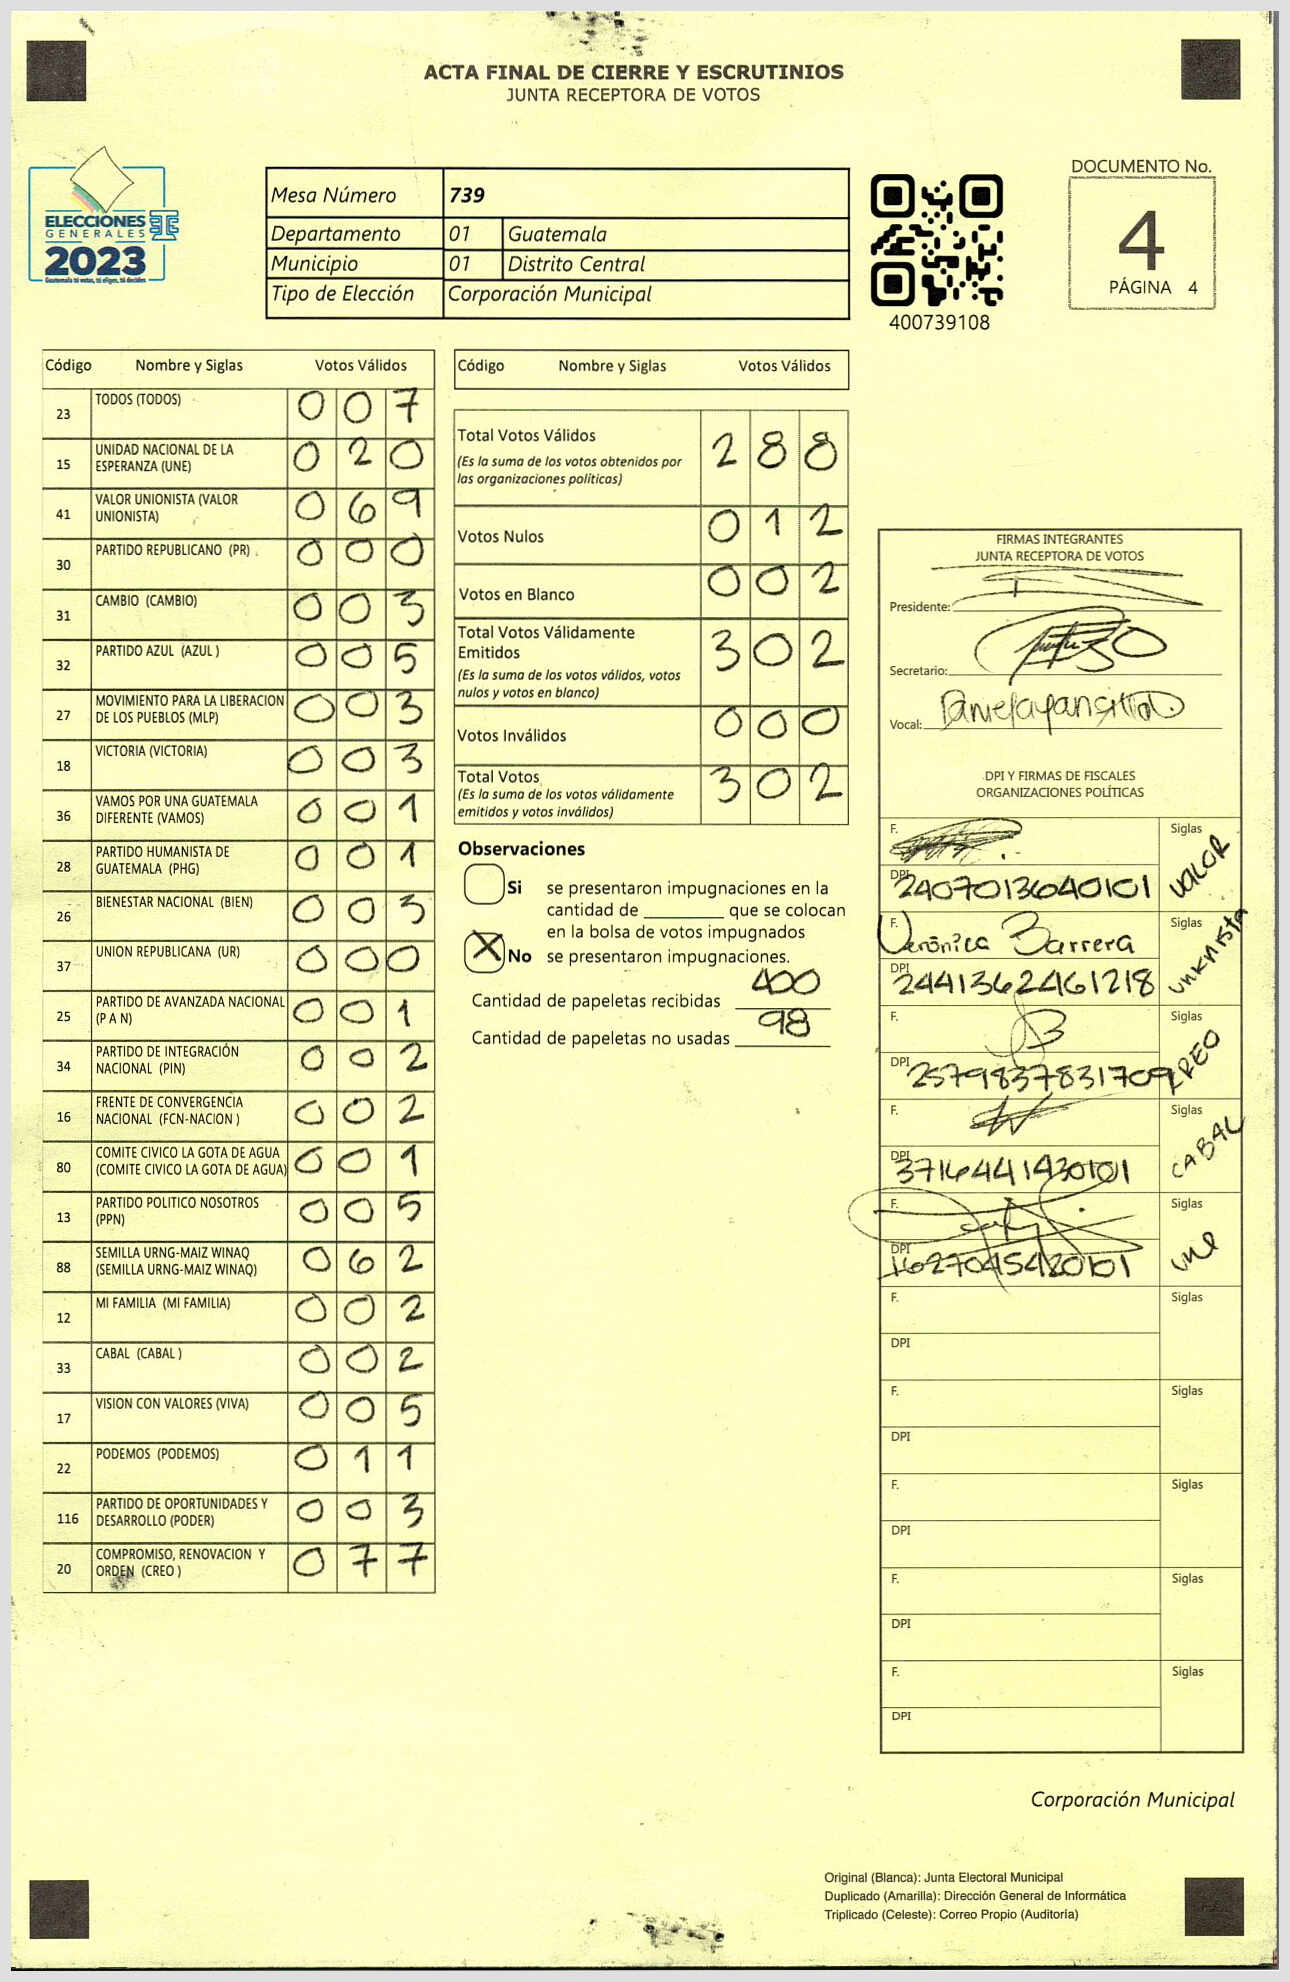 ACTA FINAL DE CIERRE Y ESCRUTINIOS
JUNTA RECEPTORA DE VOTOS
ELECCIONES
GENERALES
2023
Guatemala tú votas, tú eliges, tú decides
Mesa Número 739
Departamento 01 Guatemala
Municipio 01 Distrito Central
Tipo de Elección Corporación Municipal
400739108
DOCUMENTO No.
4
PÁGINA 4
Código Nombre y Siglas Votos Válidos
23 TODOS (TODOS) 0 0 7
15 UNIDAD NACIONAL DE LA ESPERANZA (UNE) 0 2 0
41 VALOR UNIONISTA (VALOR UNIONISTA) 0 6 9
30 PARTIDO REPUBLICANO (PR) 0 0 0
31 CAMBIO (CAMBIO) 0 0 3
32 PARTIDO AZUL (AZUL ) 0 0 5
27 MOVIMIENTO PARA LA LIBERACION DE LOS PUEBLOS (MLP) 0 0 3
18 VICTORIA (VICTORIA) 0 0 3
36 VAMOS POR UNA GUATEMALA DIFERENTE (VAMOS) 0 0 1
28 PARTIDO HUMANISTA DE GUATEMALA (PHG) 0 0 1
26 BIENESTAR NACIONAL (BIEN) 0 0 3
37 UNION REPUBLICANA (UR) 0 0 0
25 PARTIDO DE AVANZADA NACIONAL (P A N) 0 0 1
34 PARTIDO DE INTEGRACIÓN NACIONAL (PIN) 0 0 2
16 FRENTE DE CONVERGENCIA NACIONAL (FCN-NACION ) 0 0 2
80 COMITE CIVICO LA GOTA DE AGUA (COMITE CIVICO LA GOTA DE AGUA) 0 0 1
13 PARTIDO POLITICO NOSOTROS (PPN) 0 0 5
88 SEMILLA URNG-MAIZ WINAQ (SEMILLA URNG-MAIZ WINAQ) 0 6 2
12 MI FAMILIA (MI FAMILIA) 0 0 2
33 CABAL (CABAL ) 0 0 2
17 VISION CON VALORES (VIVA) 0 0 5
22 PODEMOS (PODEMOS) 0 1 1
116 PARTIDO DE OPORTUNIDADES Y DESARROLLO (PODER) 0 0 3
20 COMPROMISO, RENOVACION Y ORDEN (CREO ) 0 7 7
Código Nombre y Siglas Votos Válidos
Total Votos Válidos 2 8 8
(Es la suma de los votos obtenidos por
las organizaciones políticas)
Votos Nulos 0 1 2
Votos en Blanco 0 0 2
Total Votos Válidamente
Emitidos 3 0 2
(Es la suma de los votos válidos, votos
nulos y votos en blanco)
Votos Inválidos 0 0 0
Total Votos 3 0 2
(Es la suma de los votos válidamente
emitidos y votos inválidos)
Observaciones
Si se presentaron impugnaciones en la
cantidad de ________ que se colocan
en la bolsa de votos impugnados
X No se presentaron impugnaciones.
Cantidad de papeletas recibidas 400
Cantidad de papeletas no usadas 98
FIRMAS INTEGRANTES
JUNTA RECEPTORA DE VOTOS
Presidente:
Secretario:
Vocal:
DPI Y FIRMAS DE FISCALES
ORGANIZACIONES POLÍTICAS
F. Siglas VALOR
DPI 2407013640101
F. Verónica Barrera Siglas Unknista
DPI 2441362461218
F. Siglas CREO
DPI 2579837831709
F. Siglas CABAL
DPI 3716441430101
F. Siglas une
DPI 1627045420101
F. Siglas
DPI
F. Siglas
DPI
F. Siglas
DPI
F. Siglas
DPI
F. Siglas
DPI
Corporación Municipal
Original (Blanca): Junta Electoral Municipal
Duplicado (Amarilla): Dirección General de Informática
Triplicado (Celeste): Correo Propio (Auditoría)